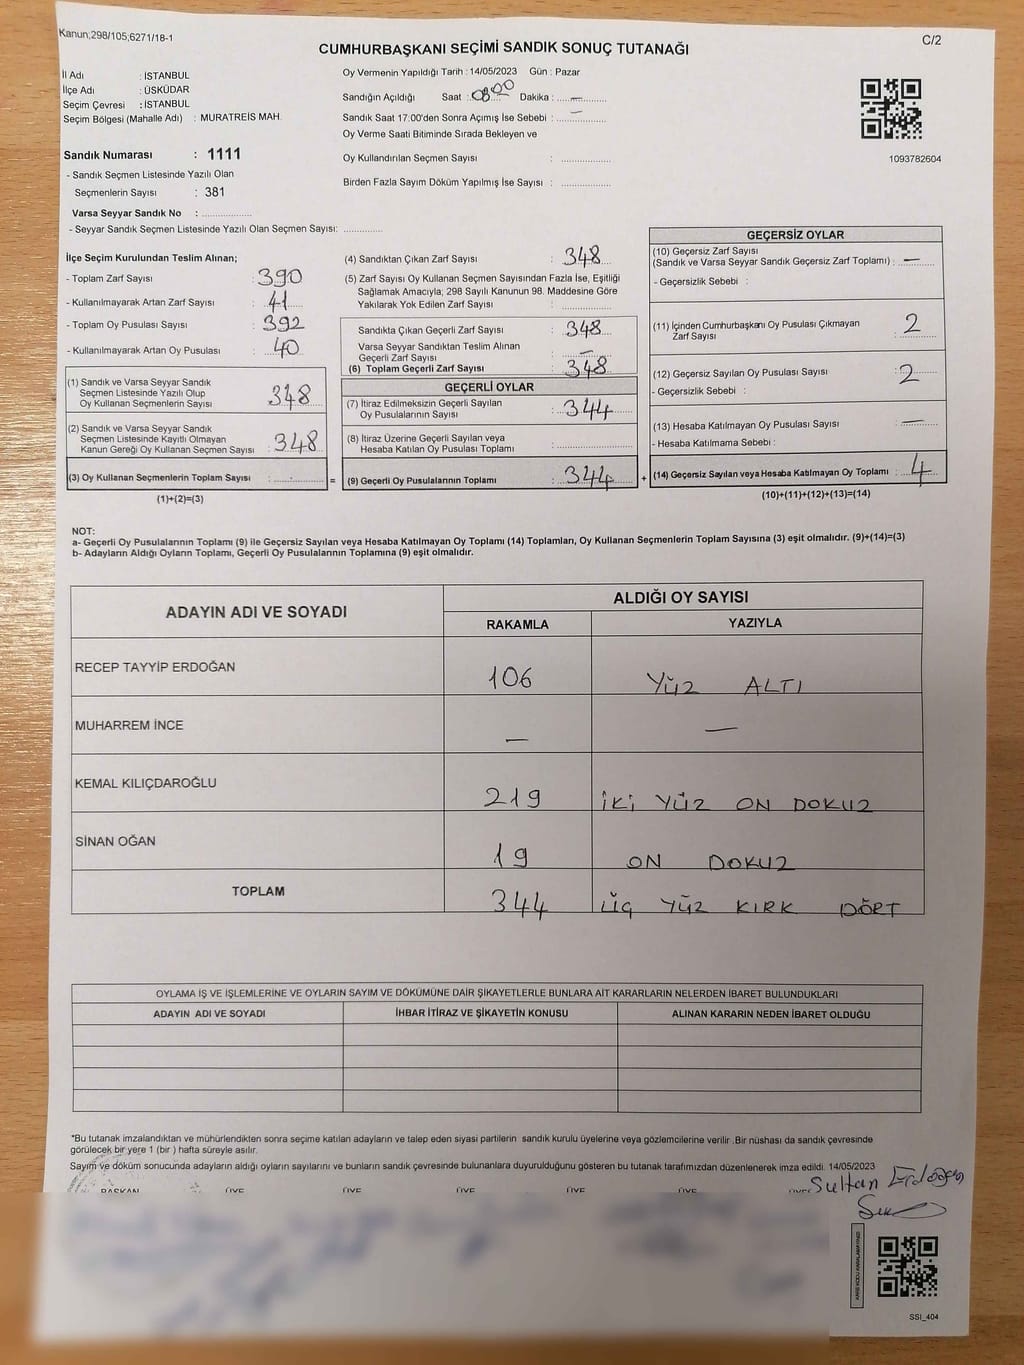 Kanun;298/105;6271/18-1
C/2
CUMHURBAŞKANI SEÇİMİ SANDIK SONUÇ TUTANAĞI
İl Adı : İSTANBUL
İlçe Adı : ÜSKÜDAR
Seçim Çevresi : İSTANBUL
Seçim Bölgesi (Mahalle Adı) : MURATREİS MAH.
Oy Vermenin Yapıldığı Tarih : 14/05/2023 Gün : Pazar
Sandığın Açıldığı Saat : 08:00 Dakika : —
Sandık Saat 17:00'den Sonra Açımış İse Sebebi : —
Oy Verme Saati Bitiminde Sırada Bekleyen ve
Oy Kullandırılan Seçmen Sayısı :
Birden Fazla Sayım Döküm Yapılmış İse Sayısı :
1093782604
Sandık Numarası : 1111
- Sandık Seçmen Listesinde Yazılı Olan
Seçmenlerin Sayısı : 381
Varsa Seyyar Sandık No :
- Seyyar Sandık Seçmen Listesinde Yazılı Olan Seçmen Sayısı:
İlçe Seçim Kurulundan Teslim Alınan;
- Toplam Zarf Sayısı : 390
- Kullanılmayarak Artan Zarf Sayısı : 41
- Toplam Oy Pusulası Sayısı : 392
- Kullanılmayarak Artan Oy Pusulası : 40
(1) Sandık ve Varsa Seyyar Sandık
Seçmen Listesinde Yazılı Olup
Oy Kullanan Seçmenlerin Sayısı : 348
(2) Sandık ve Varsa Seyyar Sandık
Seçmen Listesinde Kayıtlı Olmayan
Kanun Gereği Oy Kullanan Seçmen Sayısı : 348
(3) Oy Kullanan Seçmenlerin Toplam Sayısı :
(1)+(2)=(3)
=
(4) Sandıktan Çıkan Zarf Sayısı : 348
(5) Zarf Sayısı Oy Kullanan Seçmen Sayısından Fazla İse, Eşitliği
Sağlamak Amacıyla; 298 Sayılı Kanunun 98. Maddesine Göre
Yakılarak Yok Edilen Zarf Sayısı :
Sandıkta Çıkan Geçerli Zarf Sayısı : 348
Varsa Seyyar Sandıktan Teslim Alınan
Geçerli Zarf Sayısı : —
(6) Toplam Geçerli Zarf Sayısı : 348
GEÇERLİ OYLAR
(7) İtiraz Edilmeksizin Geçerli Sayılan
Oy Pusulalarının Sayısı : 344
(8) İtiraz Üzerine Geçerli Sayılan veya
Hesaba Katılan Oy Pusulası Toplamı :
(9) Geçerli Oy Pusulalarının Toplamı : 344
+
GEÇERSİZ OYLAR
(10) Geçersiz Zarf Sayısı
(Sandık ve Varsa Seyyar Sandık Geçersiz Zarf Toplamı) : —
- Geçersizlik Sebebi :
(11) İçinden Cumhurbaşkanı Oy Pusulası Çıkmayan
Zarf Sayısı : 2
(12) Geçersiz Sayılan Oy Pusulası Sayısı : 2
- Geçersizlik Sebebi :
(13) Hesaba Katılmayan Oy Pusulası Sayısı : —
- Hesaba Katılmama Sebebi :
(14) Geçersiz Sayılan veya Hesaba Katılmayan Oy Toplamı : 4
(10)+(11)+(12)+(13)=(14)
NOT:
a- Geçerli Oy Pusulalarının Toplamı (9) ile Geçersiz Sayılan veya Hesaba Katılmayan Oy Toplamı (14) Toplamları, Oy Kullanan Seçmenlerin Toplam Sayısına (3) eşit olmalıdır. (9)+(14)=(3)
b- Adayların Aldığı Oyların Toplamı, Geçerli Oy Pusulalarının Toplamına (9) eşit olmalıdır.
ADAYIN ADI VE SOYADI
ALDIĞI OY SAYISI
RAKAMLA YAZIYLA
RECEP TAYYİP ERDOĞAN 106 YÜZ ALTI
MUHARREM İNCE — —
KEMAL KILIÇDAROĞLU 219 İKİ YÜZ ON DOKUZ
SİNAN OĞAN 19 ON DOKUZ
TOPLAM 344 ÜÇ YÜZ KIRK DÖRT
OYLAMA İŞ VE İŞLEMLERİNE VE OYLARIN SAYIM VE DÖKÜMÜNE DAİR ŞİKAYETLERLE BUNLARA AİT KARARLARIN NELERDEN İBARET BULUNDUKLARI
ADAYIN ADI VE SOYADI İHBAR İTİRAZ VE ŞİKAYETİN KONUSU ALINAN KARARIN NEDEN İBARET OLDUĞU
*Bu tutanak imzalandıktan ve mühürlendikten sonra seçime katılan adayların ve talep eden siyasi partilerin sandık kurulu üyelerine veya gözlemcilerine verilir .Bir nüshası da sandık çevresinde
görülecek bir yere 1 (bir ) hafta süreyle asılır.
Sayım ve döküm sonucunda adayların aldığı oyların sayılarını ve bunların sandık çevresinde bulunanlara duyurulduğunu gösteren bu tutanak tarafımızdan düzenlenerek imza edildi. 14/05/2023
BAŞKAN ÜYE ÜYE ÜYE ÜYE ÜYE ÜYE
Sultan Erdoğan
SSI_404